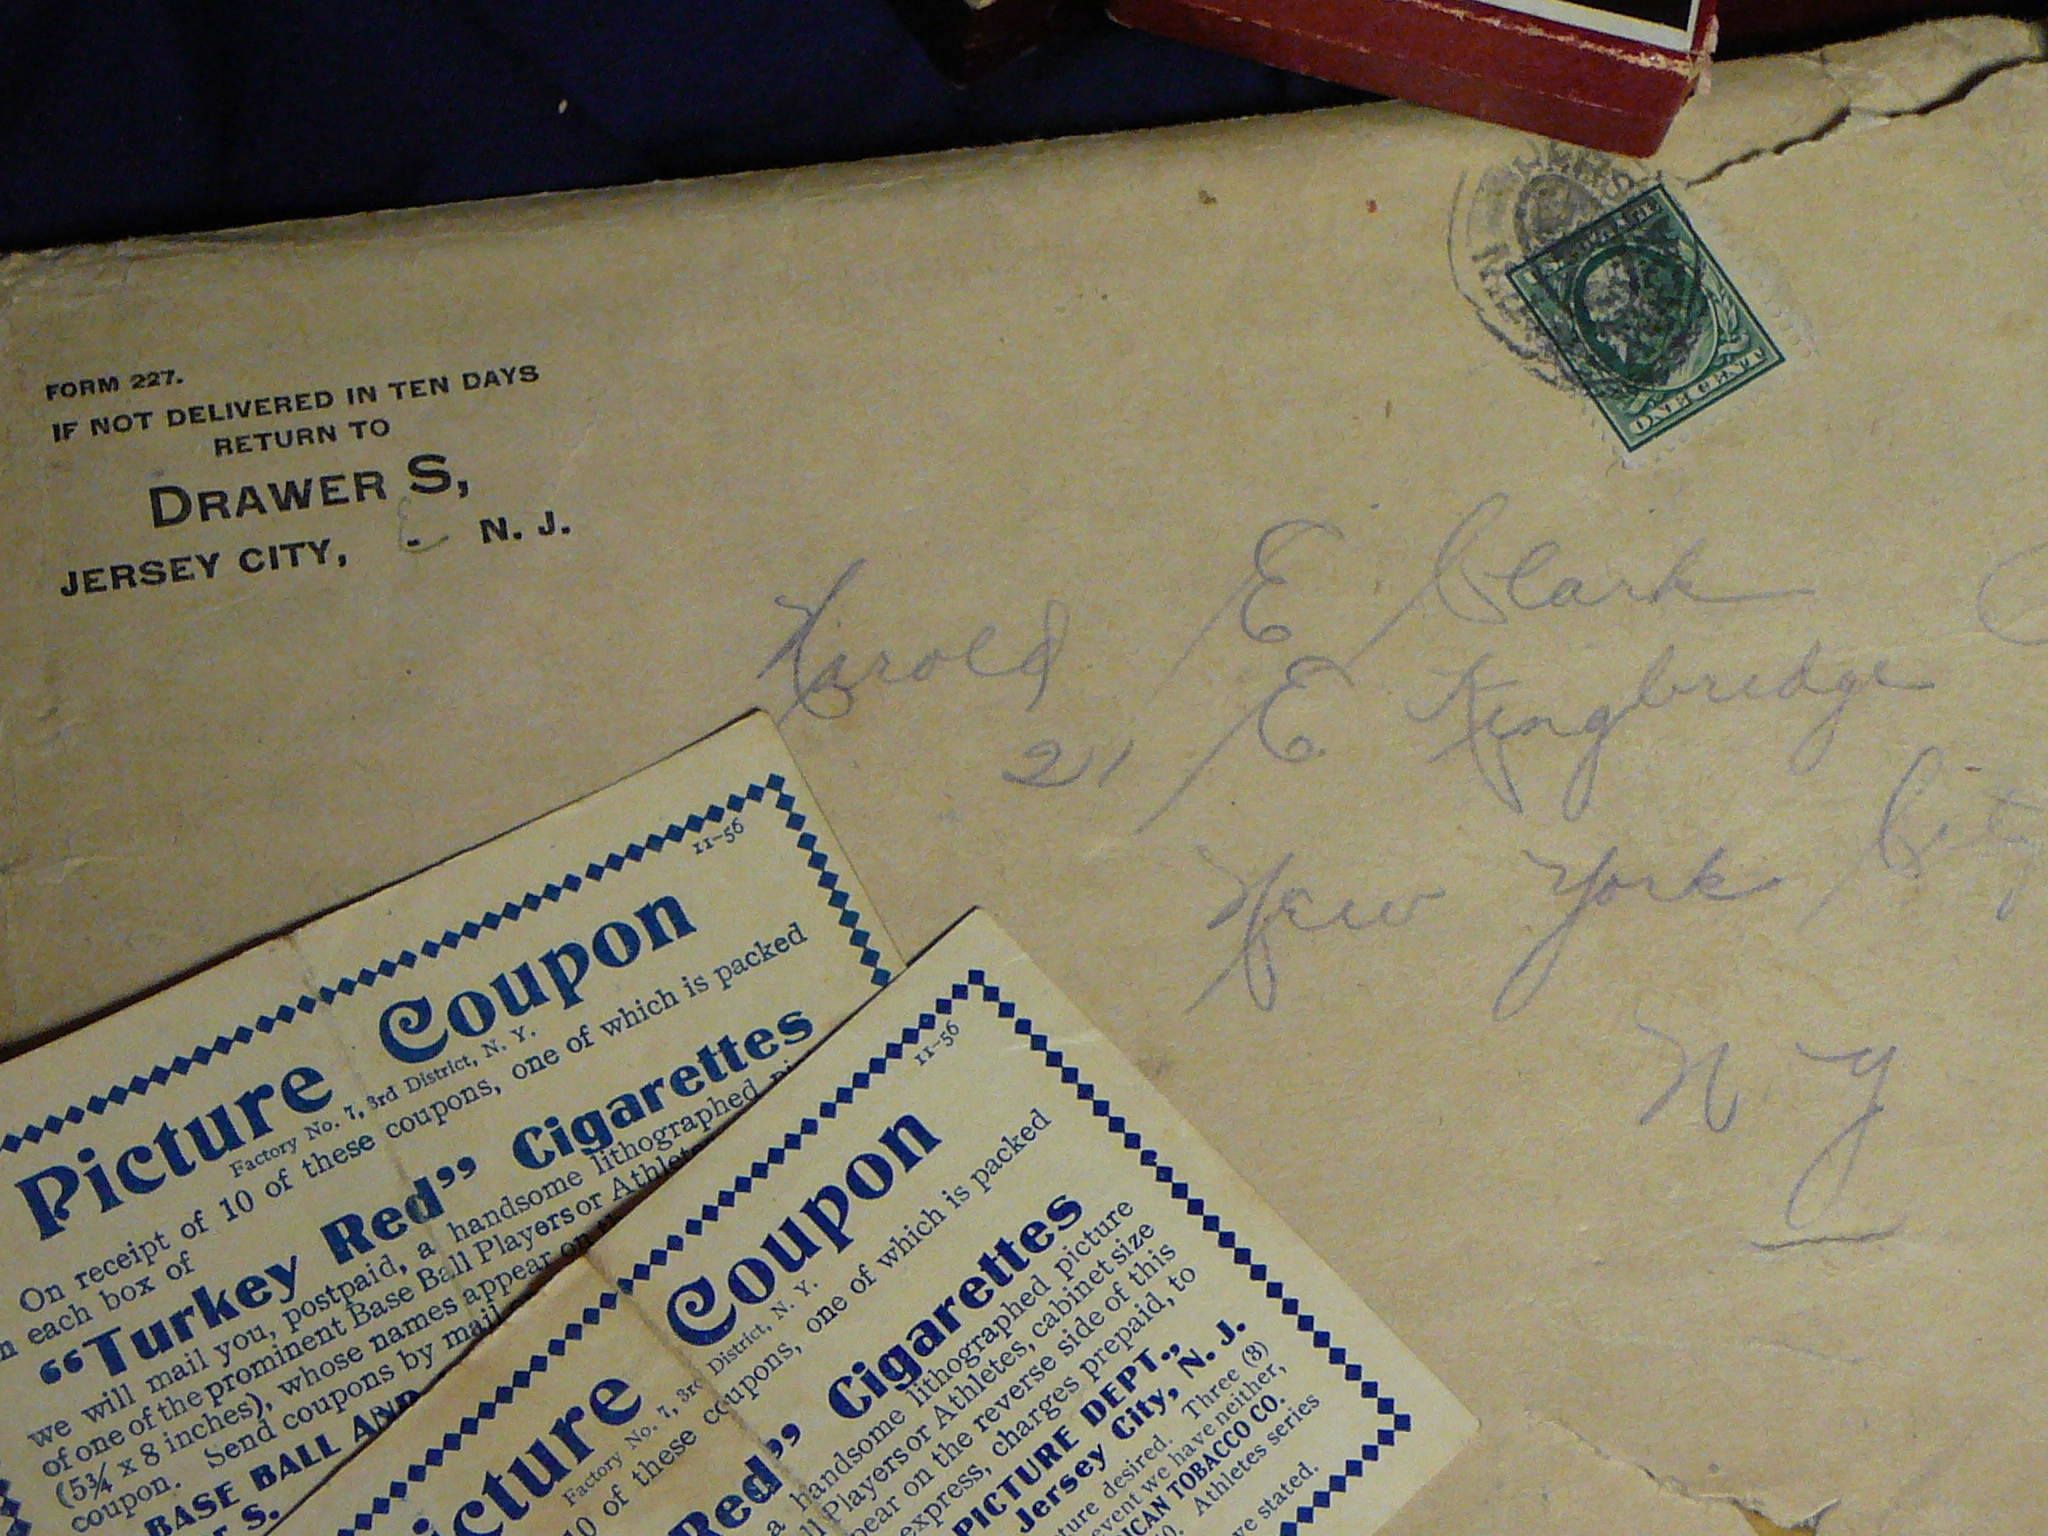 FORM 227.
IF NOT DELIVERED IN TEN DAYS
RETURN TO
DRAWER S,
JERSEY CITY, N. J.
ONE CENT
Harold E Clark
21 E Kingbridge
New York City
N. Y
11-56
Picture Coupon
Factory No. 7, 3rd District, N. Y.
On receipt of 10 of these coupons, one of which is packed
in each box of
“Turkey Red” Cigarettes
we will mail you, postpaid, a handsome lithographed
of one of the prominent Base Ball Players or Athlete
(5¾ x 8 inches), whose names appear on
coupon. Send coupons by mail
BASE BALL AND
S.
11-56
icture Coupon
Factory No. 7, 3rd District, N. Y.
10 of these coupons, one of which is packed
Red” Cigarettes
a handsome lithographed picture
ll Players or Athletes, cabinet size
pear on the reverse side of this
express, charges prepaid, to
PICTURE DEPT.,
Jersey City, N. J.
ture desired. Three (3)
event we have neither,
ICAN TOBACCO CO.
Athletes series
ve stated.